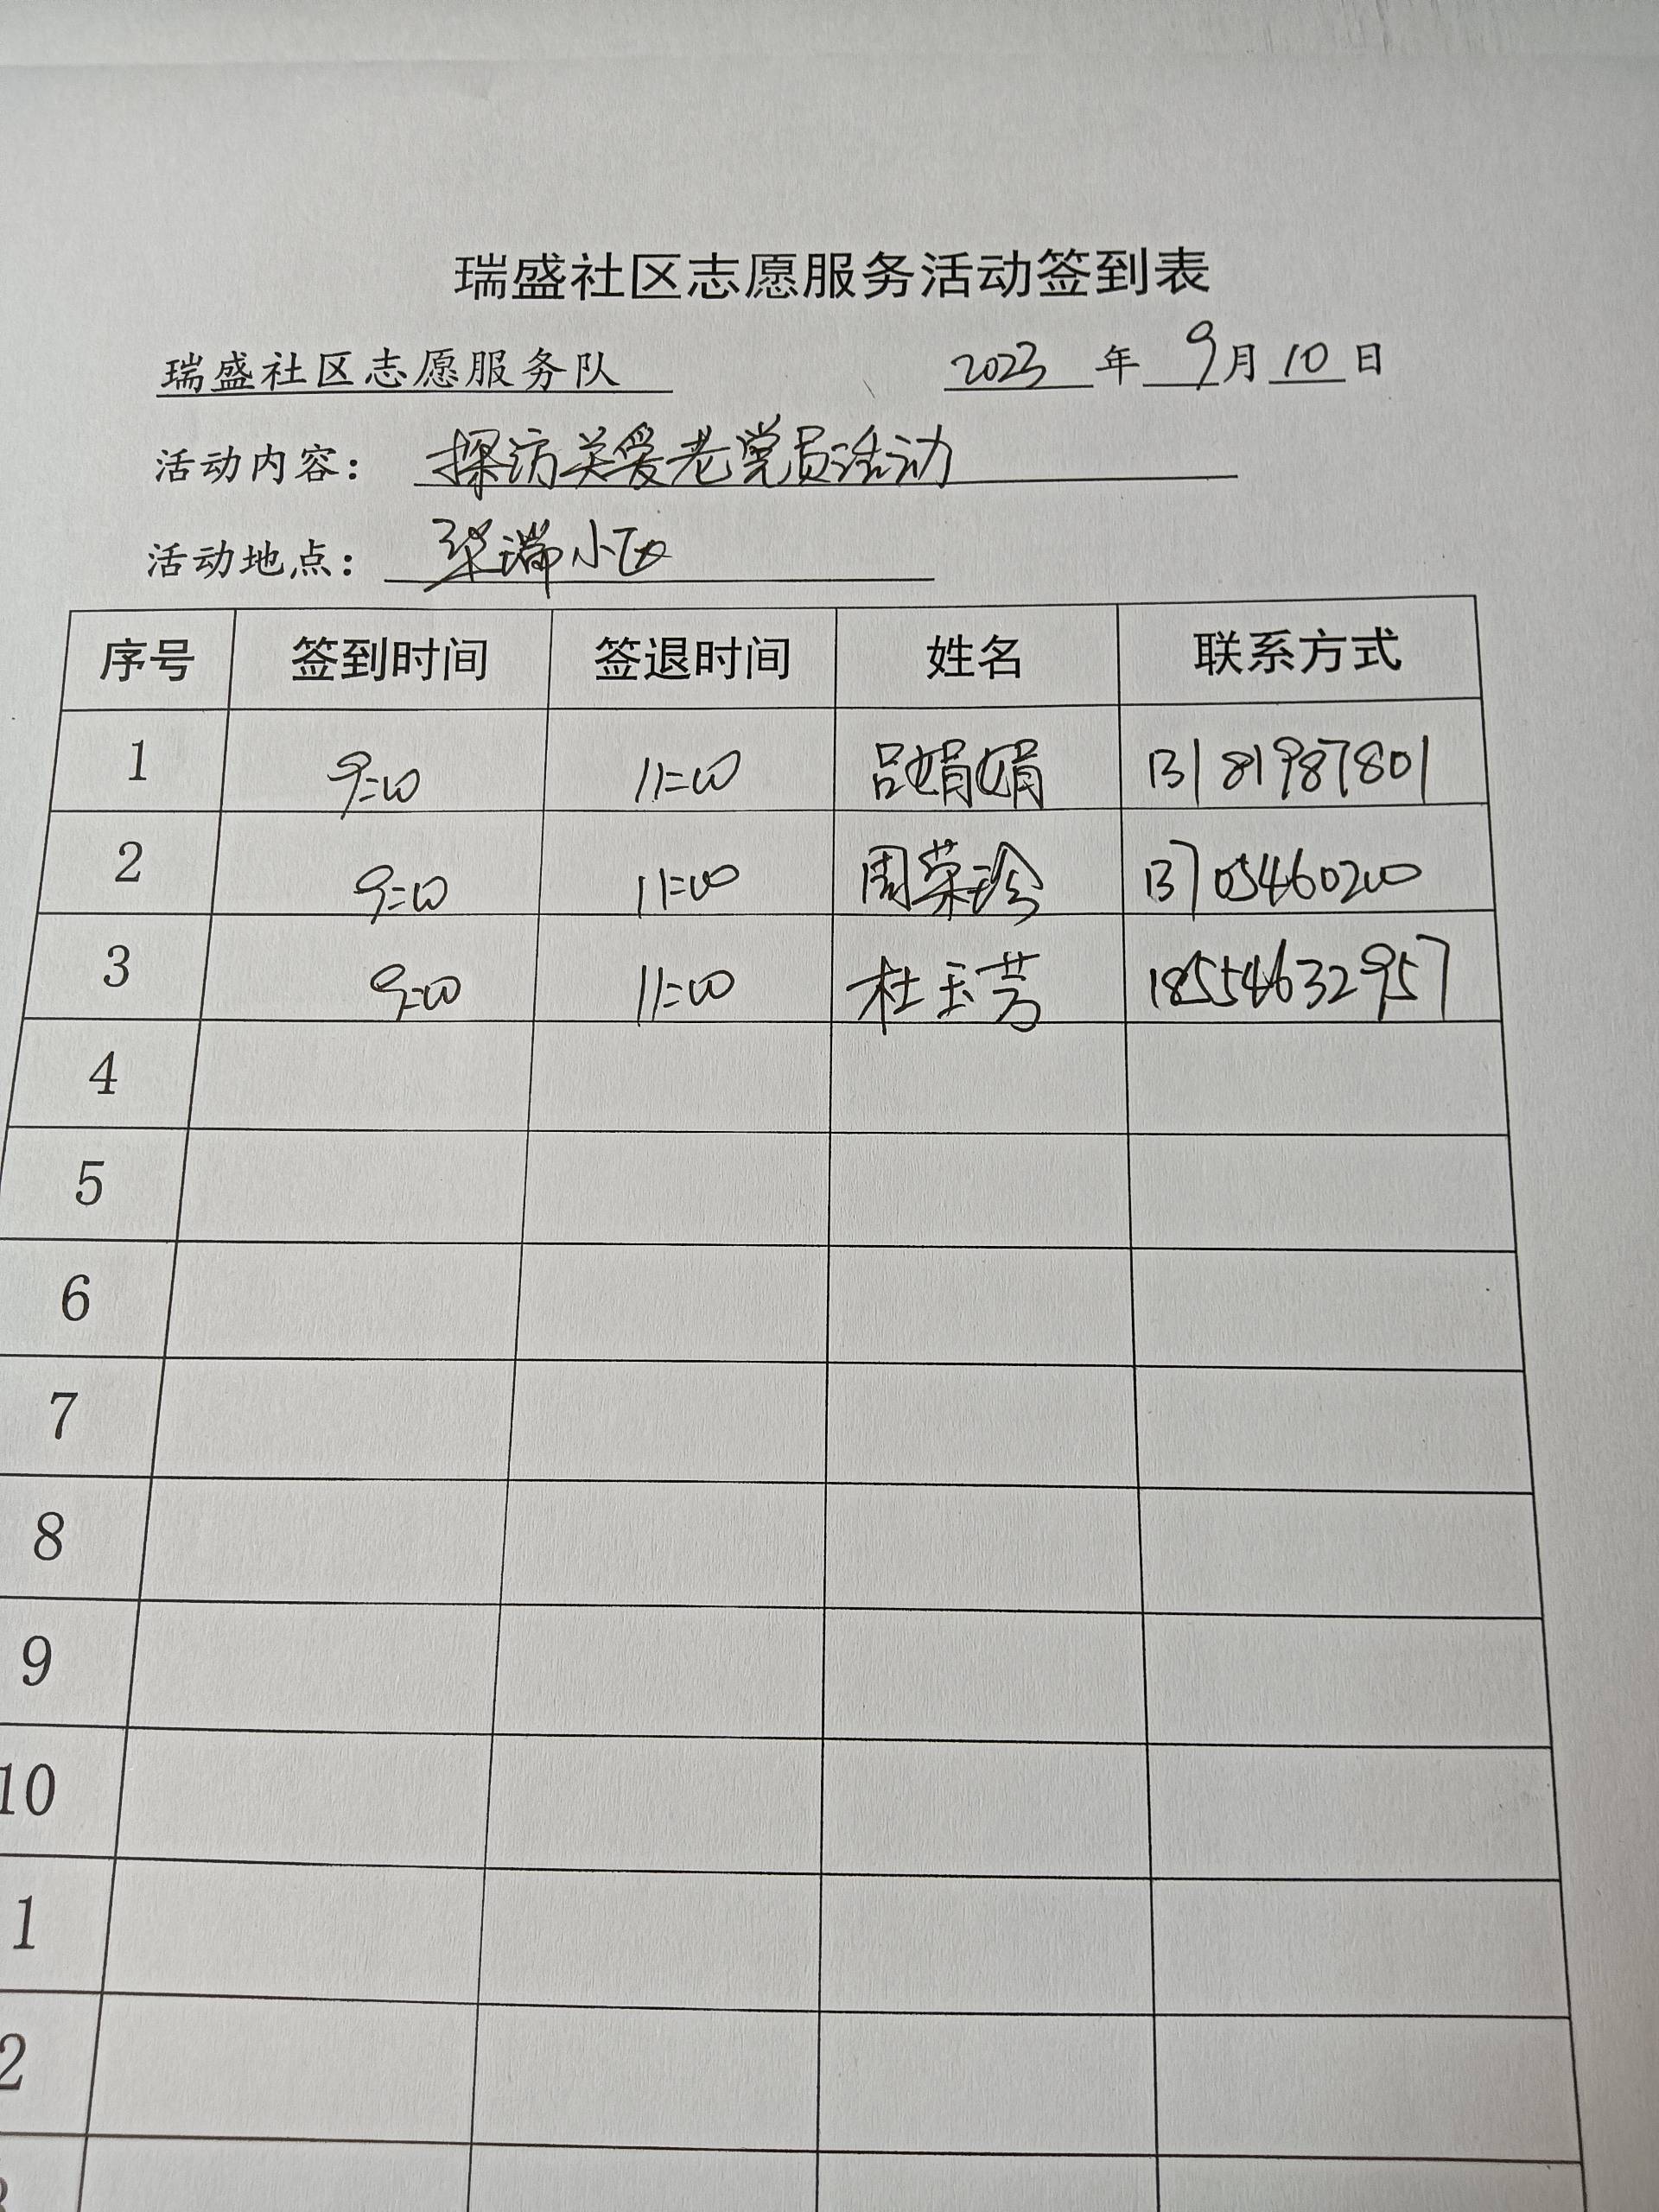 瑞盛社区志愿服务活动签到表
瑞盛社区志愿服务队 2023 年 9 月 10 日
活动内容： 探访关爱老党员活动
活动地点： 瑞小区
序号 签到时间 签退时间 姓名 联系方式
1 9:00 11:00 吕娟娟 13181987801
2 9:00 11:00 周荣珍 13705460200
3 9:00 11:00 杜玉芳 18554632957
4
5
6
7
8
9
10
1
2